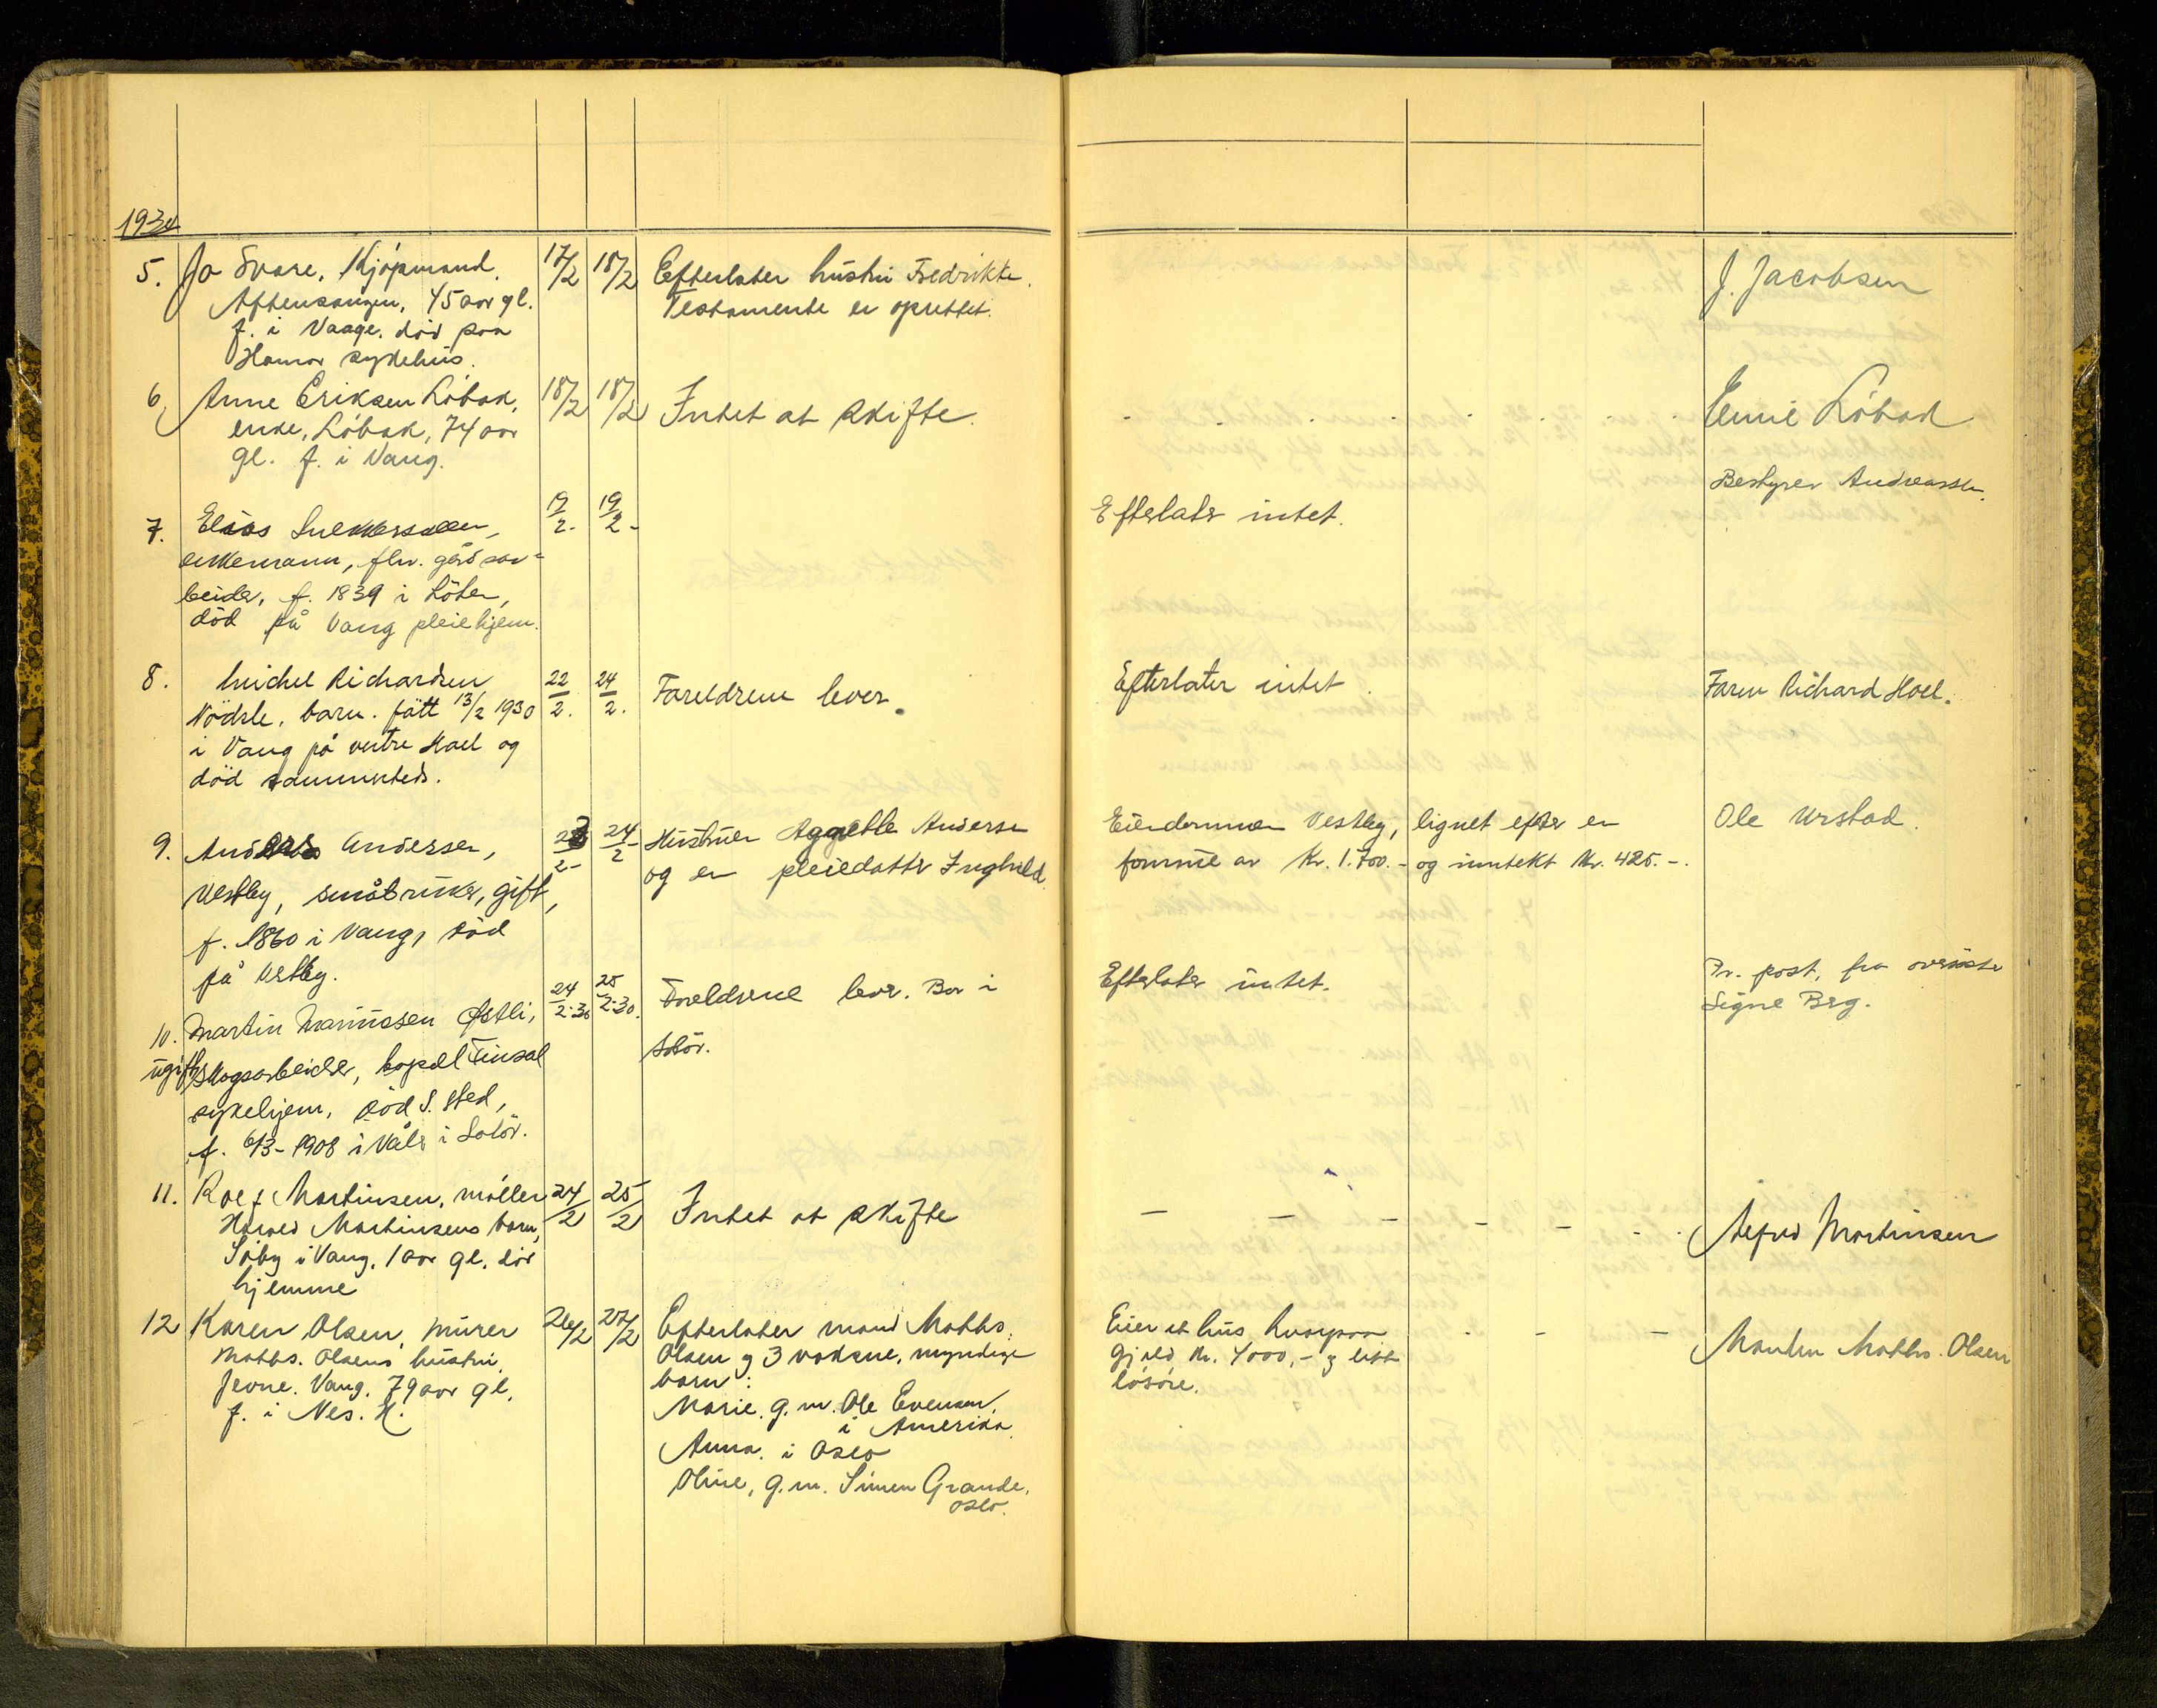 1930
5. Jo Svare, Kjøpmand, 17/2 18/2 Efterlater hustru Fredrikke. J. Jacobsen
Aftensangen, 45 aar gl. Testamente er oprettet.
f. i Vaage. død paa
Hamar sykehus.
6, Anne Eriksen Løbak, 18/2 18/2 Intet at skifte. Emil Løbak
enke, Løbak, 74 aar
gl. f. i Vang.
7. Elias 19/2- 19/2- Efterlater intet. Bestyrer Andreassen.
enkemann, flv. gårdsar-
beider, f. 1839 i Löten,
död på Vang pleiehjem.
8. Michel Richardsen 22/2. 24/2. Foreldrene lever. Efterlater intet. Faren Richard Hoel.
barn. født 13/2 1930
i Vang på vestre Hoel og
död sammesteds.
9. Anders Anderssen, 23/2- 24/2- Hustruen Aggette Anderssen Eiendommen Vestby, lignet efter en Ole Urstad.
Vestby, småbruker, gift, og en pleiedatter Inghild formue av Kr. 1.700.- og inntekt Kr. 425.-.
f. 1860 i Vang, död
på Vestby.
10. Martin Marinusen Østli, 24/2-30 25/2-30. Foreldrene lever. Bor i Efterlater intet. Pr. post, fra oversöster
ugift, skogsarbeider, bopel Finsal Solör. Signe Berg.
sykehjem, död s. sted,
f. 6/3-1908 i Våler i Solör.
11. Rolf Martinsen, møller 24/2 25/2 Intet at skifte — — — — — Alfred Martinsen
Harald Martinsens barn,
Søby i Vang, 1 aar gl. død
hjemme
12 Karen Olsen, murer 26/2 27/2 Efterlater mand Mathis Eier et hus, hvorpaa - - — Martin Mathis. Olsen
Mathis. Olsens hustru, Olsen og 3 voksne, myndige gjeld kr. 4000,- og litt
Jevne. Vang, 79 aar gl. barn: løsøre.
f. i Nes. H. Marie, g.m. Ole Evensen,
i Amerika
Anna, i Oslo
Oline, g.m. Simen Grande,
Oslo.